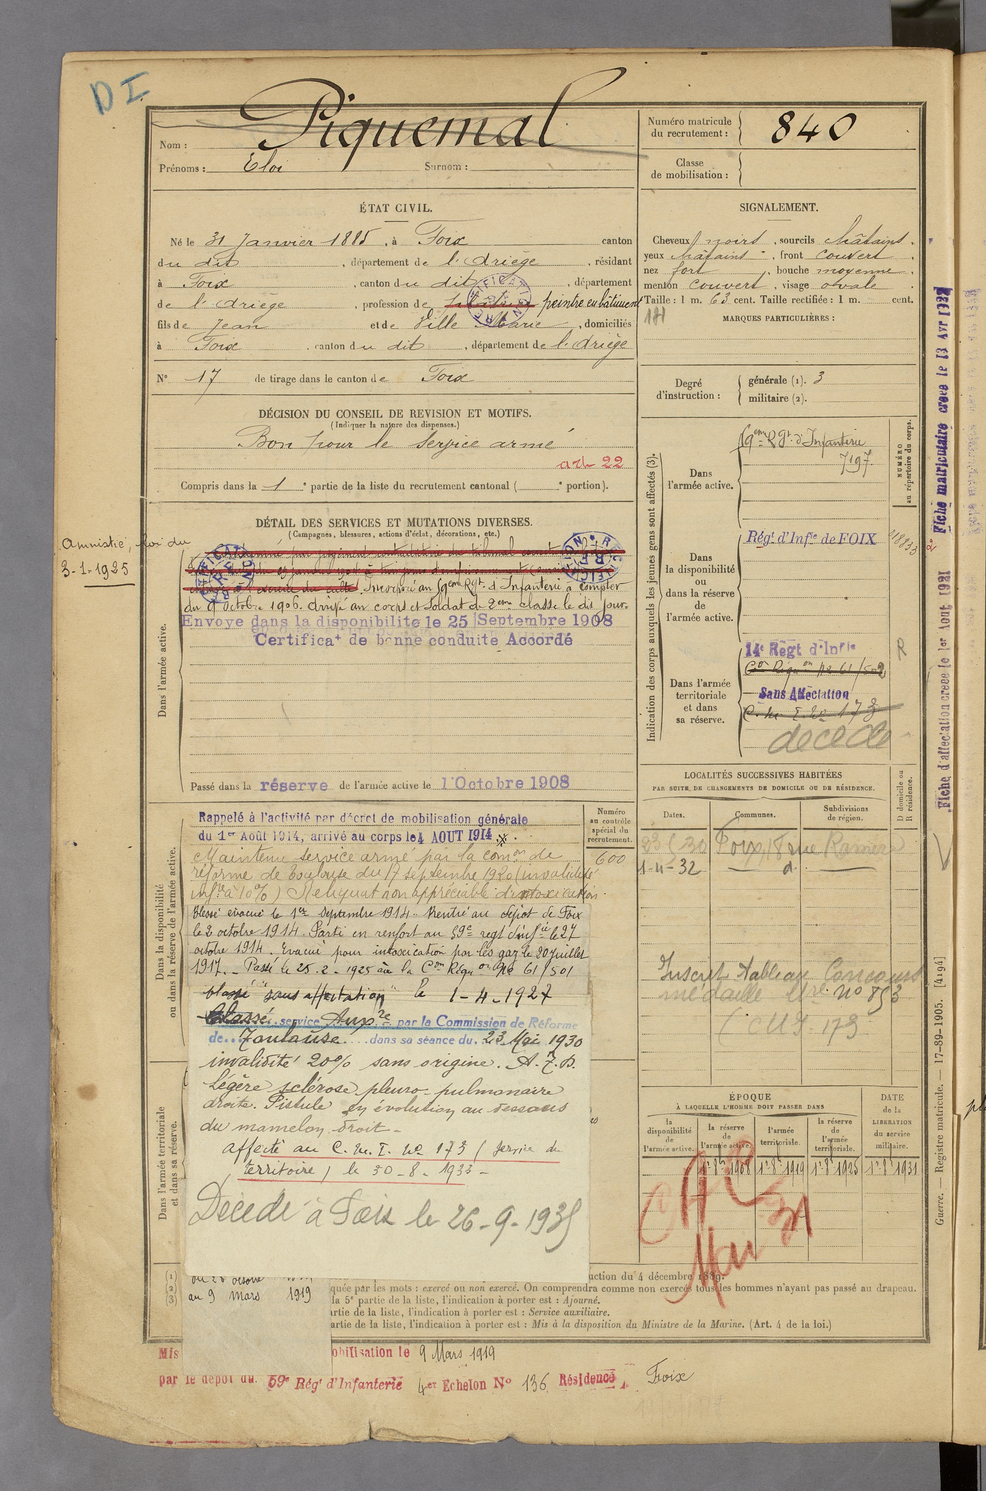 D I
Piquemal
Nom :
Prénoms : Eloi Surnom :
Numéro matricule du recrutement : 840
Classe de mobilisation :
ÉTAT CIVIL.
Né le 31 Janvier 1885, à Foix canton
du dit, département de l'Ariège, résidant
à Foix, canton du dit, département
de l'Ariège, profession de peintre en bâtiment
fils de Jean et de Ville Marie, domiciliés
à Foix, canton du dit, département de l'Ariège
N° 17 de tirage dans le canton de Foix
SIGNALEMENT.
Cheveux noirs, sourcils châtains.
yeux châtains, front couvert,
nez fort, bouche moyenne,
menton couvert, visage ovale.
Taille : 1 m. 63 cent. Taille rectifiée : 1 m. cent.
MARQUES PARTICULIÈRES :
Degré d'instruction : générale (1). 3
militaire (2).
DÉCISION DU CONSEIL DE REVISION ET MOTIFS.
(Indiquer la nature des dispenses.)
Bon pour le service armé
art 22
Compris dans la 1e partie de la liste du recrutement cantonal ( e portion).
DÉTAIL DES SERVICES ET MUTATIONS DIVERSES.
(Campagnes, blessures, actions d'éclat, décorations, etc.)
Amnistie, loi du
3-1-1925
Incorporé au 59eme Rgt. d'Infanterie à compter
du 9 octobre 1906. Arrivé au corps et soldat de 2eme classe le dit jour.
Envoyé dans la disponibilité le 25 Septembre 1908
Certificat de bonne conduite Accordé
Dans l'armée active.
Passé dans la réserve de l'armée active le 1 Octobre 1908
Indication des corps auxquels les jeunes gens sont affectés (3).
NUMÉRO au répertoire du corps.
Dans l'armée active.
59eme Rgt. d'Infanterie
7197
Dans la disponibilité ou dans la réserve de l'armée active.
Régt d'Infie de FOIX
Dans l'armée territoriale et dans sa réserve.
14e Régt d'Infie
Con Régon No 61/502
Sans Affectation
C. M. I. No 173
décédé
R
LOCALITÉS SUCCESSIVES HABITÉES
PAR SUITE DE CHANGEMENTS DE DOMICILE OU DE RÉSIDENCE.
Dates. Communes. Subdivisions de région. D domicile ou R résidence.
Foix, 18 rue
1-4-32 d°
Inscrit Tableau Concours
médaille Mre. No 853
(CMI. 173
Dans la disponibilité ou dans la réserve de l'armée active.
Numéro au contrôle spécial du recrutement.
600
Rappelé à l'activité par décret de mobilisation générale
du 1er Août 1914, arrivé au corps le 4 AOUT 1914
Maintenu service armé par la comon de
réforme de Toulouse du 17 septembre 1920 (invalidité
infre à 10%) Reliquat non appréciable d'intoxication.
Blessé évacué le 1er septembre 1914. Rentré au dépôt de Foix
le 2 octobre 1914. Parti en renfort au 59e regt d'infie le 27
octobre 1914. Evacué pour intoxication par les gaz le 20 juillet
1917. - Passé le 25-2-1925 à la Con Régon No 61/501
classé "sans affectation" le 1-4-1927
Classé service Auxre par la Commission de Réforme
de Toulouse dans sa séance du 23 Mai 1930
invalidité 20% sans origine. A.F.D.
Légère sclérose pleuro-pulmonaire
droite. Fistule en évolution au dessous
du mamelon droit -
affecté au C. M. I. No 173 (service du
territoire) le 30-8-1933 -
Décédé à Foix le 26-9-1935
Dans l'armée territoriale et dans sa réserve.
ÉPOQUE
À LAQUELLE L'HOMME DOIT PASSER DANS
la disponibilité de l'armée active.
la réserve de l'armée active.
l'armée territoriale.
la réserve de l'armée territoriale.
DATE de la LIBÉRATION du service militaire.
1er 8bre 1908 1er 8bre 1919 1er 8bre 1925 1er 8bre 1931
Mai 31
(1)
(2)
(3)
au 9 mars 1919
uction du 4 décembre 1889.
quée par les mots : exercé ou non exercé. On comprendra comme non exercés tous les hommes n'ayant pas passé au drapeau.
la 5e partie de la liste, l'indication à porter est : Ajourné.
artie de la liste, l'indication à porter est : Service auxiliaire.
artie de la liste, l'indication à porter est : Mis à la disposition du Ministre de la Marine. (Art. 4 de la loi.)
Mis obilisation le 9 Mars 1919
par le dépôt du 59e Régt d'Infanterie 4er Echelon N° 136 Résidence, Foix
Fiche matriculaire créée le 13 Avr 1932
Fiche d'affectation créée le 1er Aout 1921
Guerre. — Registre matricule. — 17-89-1905. [4194]